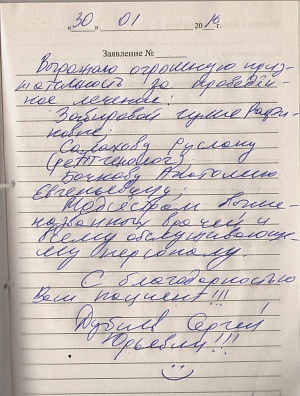 «30» 01 2016г.
Заявление №
Выражаю огромную приз-
нательность за проведён-
ное лечение:
Гузие Рафи-
ковне;
Салахову Руслану
Бочкову Анатолию
Евгеньевичу;
Медсёстрам выше-
названных врачей и
всему обслуживающе-
му персоналу.
С благодарностью
Ваш пациент!!!
Сергей
Юрьевич!!!